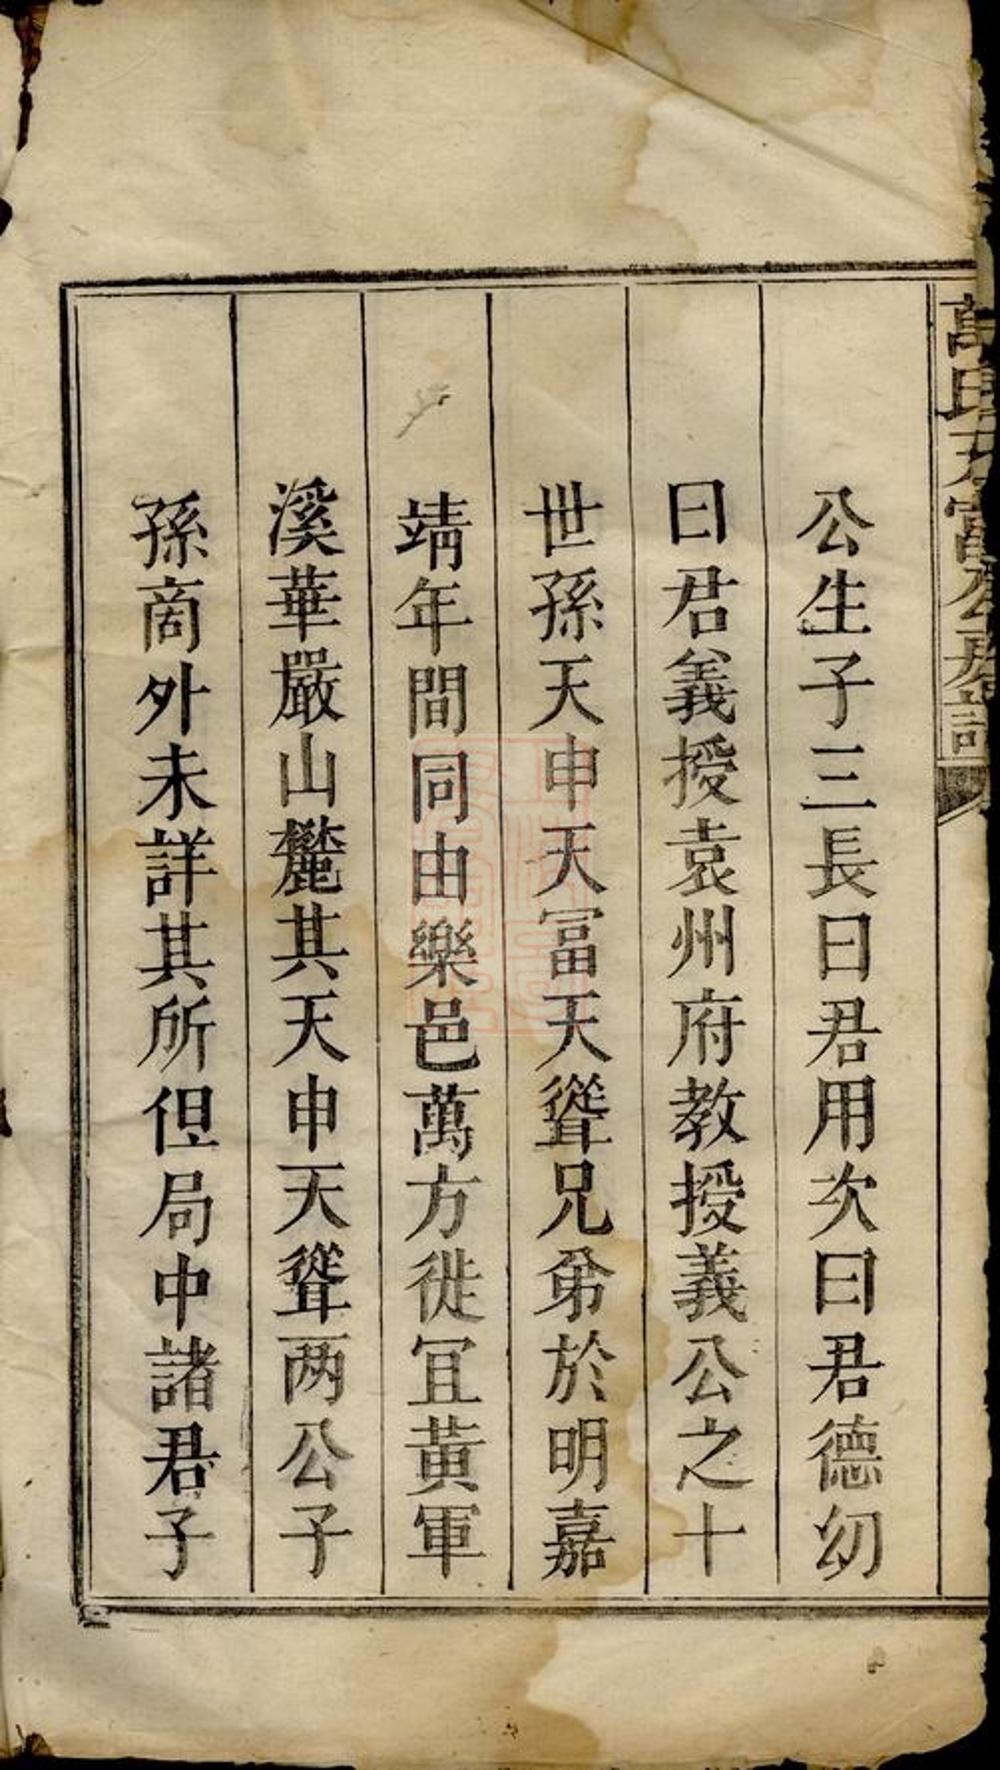 萬氏天富公房譜
公生子三長曰君用次曰君德幼
曰君義授袁州府教授義公之十
世孫天申天冨天聳兄弟於明嘉
靖年間同由樂邑萬方徙冝黃軍
溪華嚴山麓其天申天聳两公子
孫商外未詳其所但局中諸君子